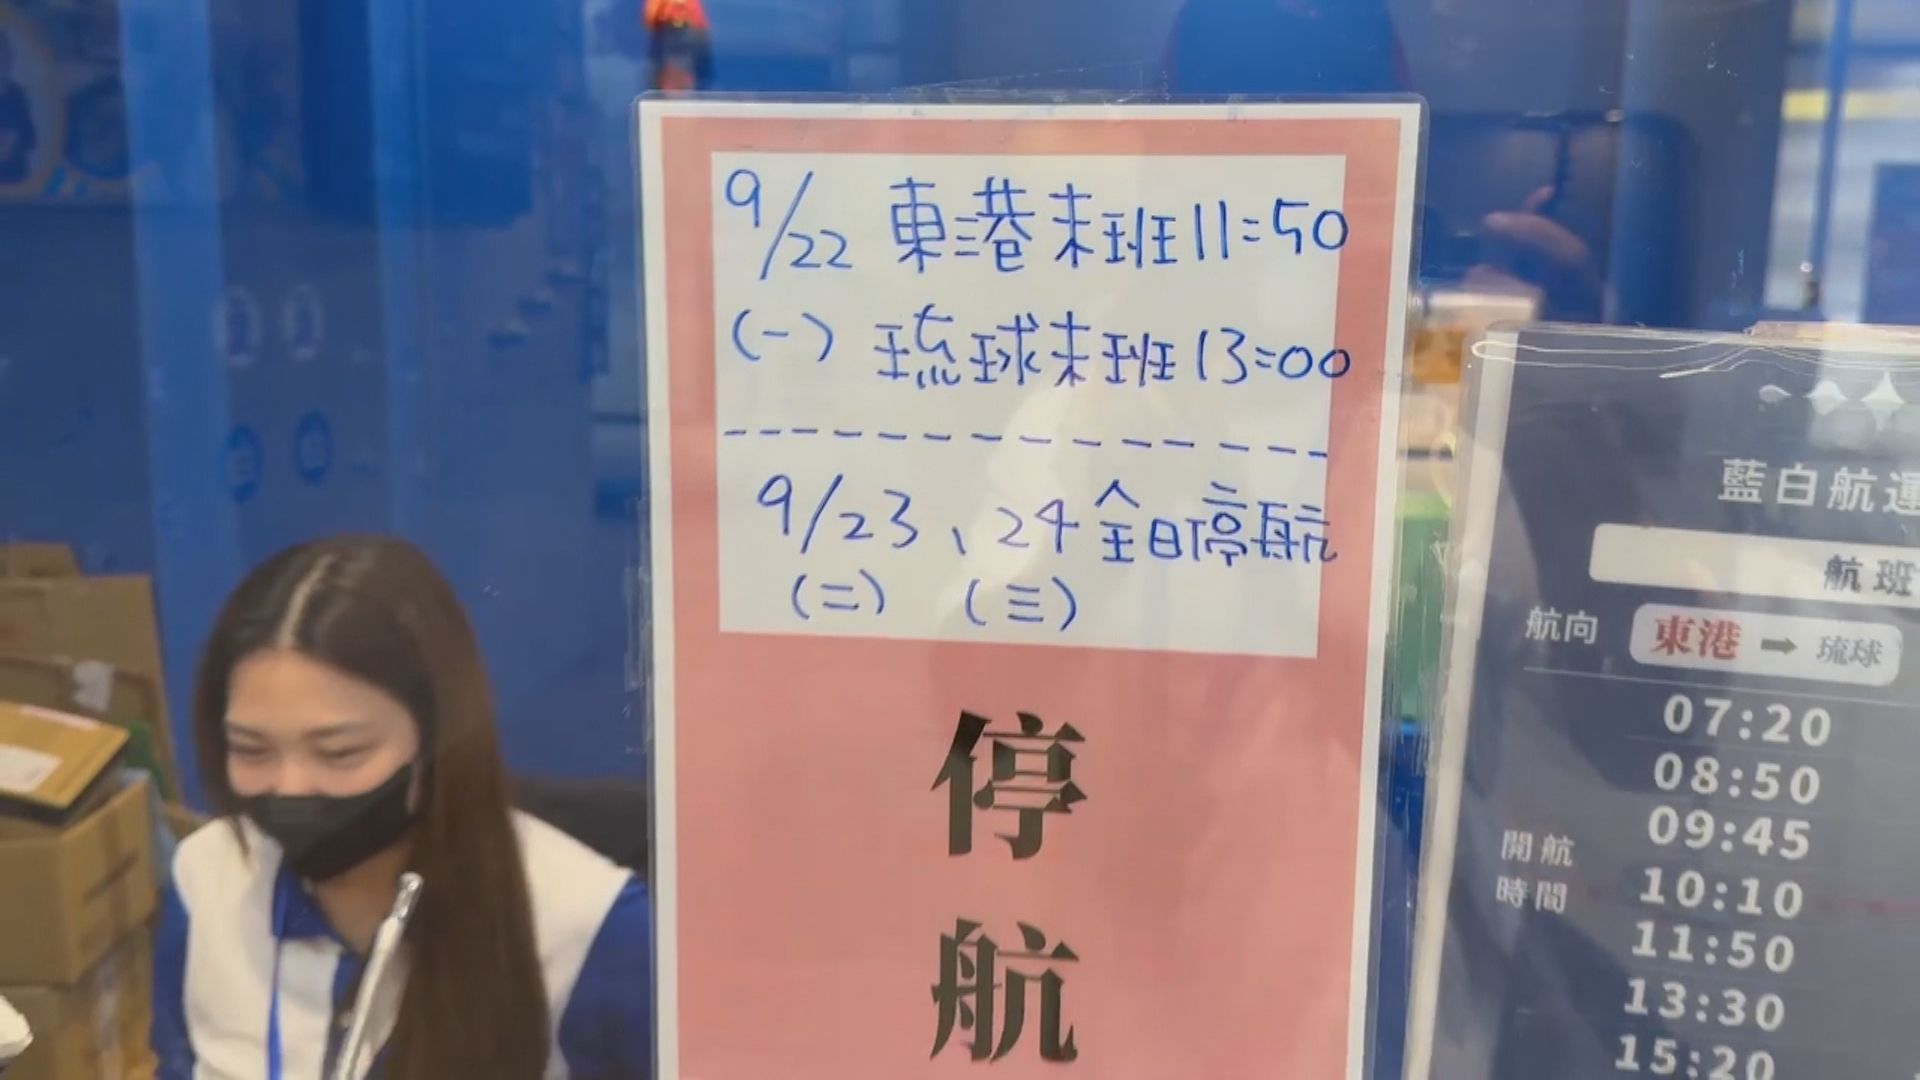 9/22 東港末班11:50
(一) 琉球末班13:00
9/23、24全日停航
(二) (三)
停
航
藍白航運
航班
航向 東港 ➡ 琉球
開航
時間
07:20
08:50
09:45
10:10
11:50
13:30
15:20